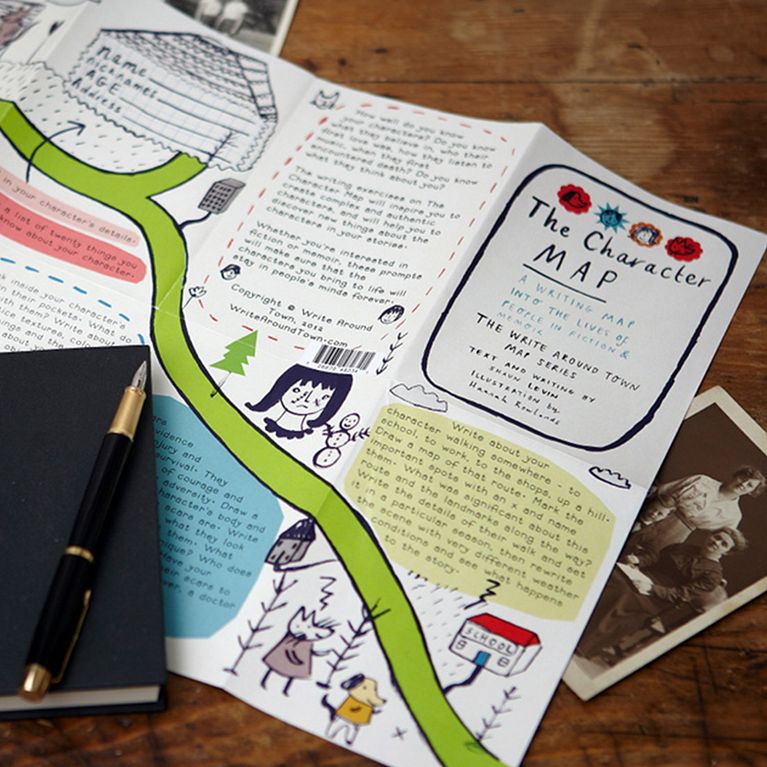 Name
Nicknames
AGE
Address
in your character's details.
a list of twenty things you
know about your character.
ok inside your character's
in their pockets. What do
with them? Write about
textures, colo
ings and the
about you
How well do you know
your characters? Do you know
what they believe in, who their
first love was, how they listen to
music, when they first
encountered death? Do you know
what they think about you?
The writing exercises on The
Character Map will inspire you to
create complex and authentic
characters, and will help you to
discover new things about the
characters in your stories.
Whether you're interested in
fiction or memoir, these prompts
will make sure that the
characters you bring to life will
stay in people's minds forever.
Copyright © Write Around
Town, 2012
WriteAroundTown.com
The Character
MAP
A WRITING MAP
INTO THE LIVES OF
PEOPLE IN FICTION &
MEMOIR
THE WRITE AROUND TOWN
MAP SERIES
TEXT AND WRITING BY
SHAUN LEVIN
ILLUSTRATION by
Hannah Rowlands
Write about your
character walking somewhere - to
school, to work, to the shops, up a hill.
Draw a map of that route. Mark the
important spots with an x and name
them. What was significant about this
route and the landmarks along the way?
Write the details of their walk and set
it in a particular season, then rewrite
the scene with very different weather
conditions and see what happens
to the story.
are
vidence
njury and
survival. They
of courage and
adversity. Draw a
haracter's body and
scars are. Write
what they look
them. What
nique? Who does
Have your
heir scars to
er, a doctor
SCHOOL
x